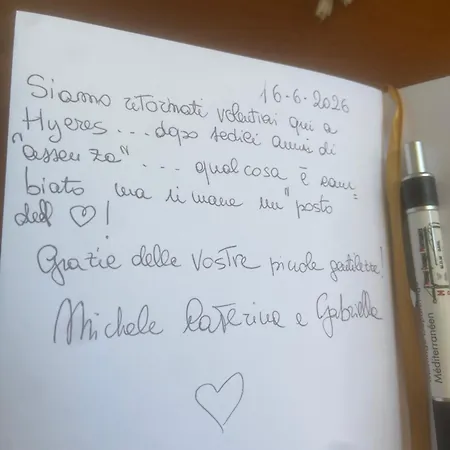 16-6-2026
Siamo ritornati volentieri qui a
Hyeres ... dopo sedici anni di
"assenza" ... qualcosa è cam=
biato ma rimane un "posto
del ♡!
Grazie delle vostre piccole gentilezze!
Michele Caterina e Gabriella
♡
Méditerranéen